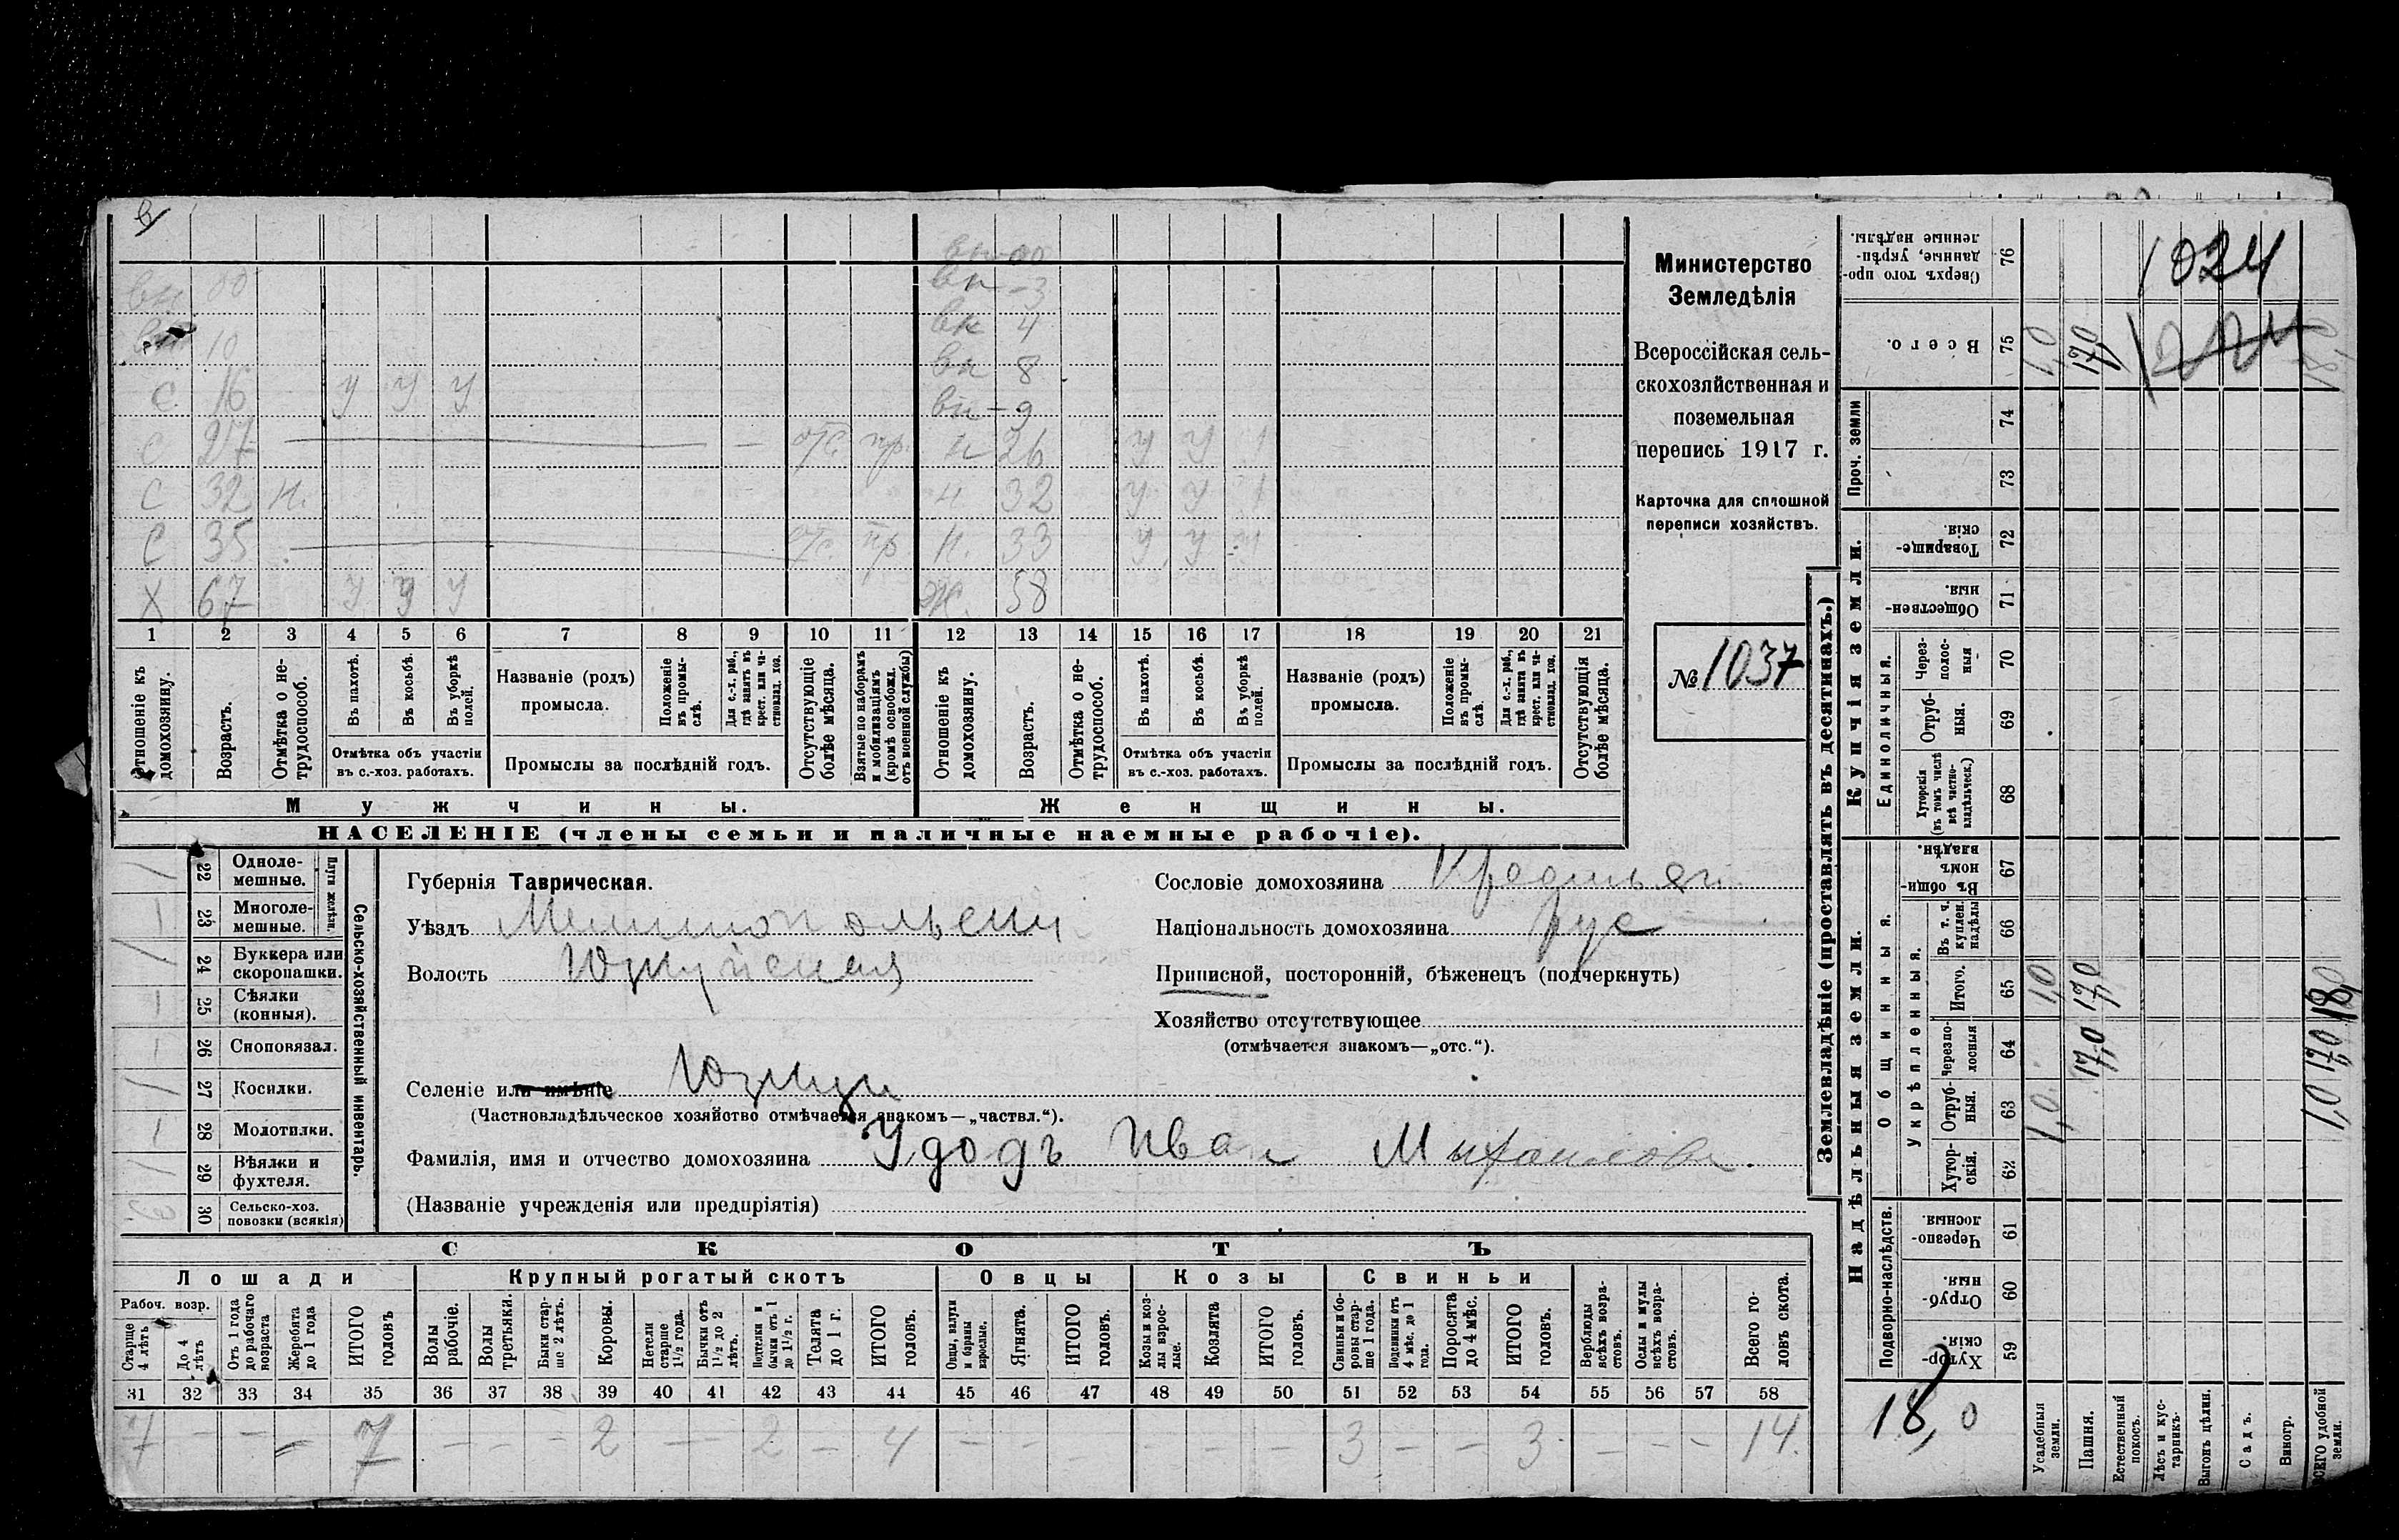 вн 00 вн 00
вн 10 вн - 3
вн 4
С 16 У У У вн 8
вн - 9
С 27 — отс. пр. н 26 У У У
С 32 н. н 32 У У У
С 35 — отс. пр н. 33 У У У
Х 67 У У У Ж. 58
1 2 3 4 5 6 7 8 9 10 11 12 13 14 15 16 17 18 19 20 21
Отношеніе къ домохозяину.
Возрастъ.
Отмѣтка о нетрудоспособ.
Въ пахотѣ.
Въ косьбѣ.
Въ уборкѣ полей.
Отмѣтка объ участіи въ с.-хоз. работахъ.
Названіе (родъ) промысла.
Положеніе въ промыслѣ.
Для с.-х. раб., гдѣ занятъ въ крест. или частновлад. хоз.
Промыслы за послѣдній годъ.
Отсутствующіе болѣе мѣсяца.
Взятые по наборамъ и мобилизаціямъ (кромѣ освобожд. отъ военной службы)
Отношеніе къ домохозяину.
Возрастъ.
Отмѣтка о нетрудоспособ.
Въ пахотѣ.
Въ косьбѣ.
Въ уборкѣ полей.
Отмѣтка объ участіи въ с.-хоз. работахъ.
Названіе (родъ) промысла.
Положеніе въ промыслѣ.
Для с.-х. раб., гдѣ занята въ крест. или частновлад. хоз.
Промыслы за послѣдній годъ.
Отсутствующія болѣе мѣсяца.
Мужчины. Женщины.
НАСЕЛЕНІЕ (члены семьи и наличные наемные рабочіе).
Министерство
Земледѣлія
Всероссійская сель-
скохозяйственная и
поземельная
перепись 1917 г.
Карточка для сплошной
переписи хозяйствъ.
№ 1037
Сельско-хозяйственный инвентарь.
Плуги желѣзн.
22 Одноле-мешные. 1
23 Многоле-мешные. 1
24 Буккера или скоропашки. 1
25 Сѣялки (конныя). 1
26 Сноповязал. 1
27 Косилки. 1
28 Молотилки. 1
29 Вѣялки и фухтеля. 1
30 Сельско-хоз. повозки (всякія) 3
Губернія Таврическая.
Уѣздъ Мелитопольскій
Волость Юзкуйская
Селеніе или имѣніе Юзкуи
(Частновладѣльческое хозяйство отмѣчается знакомъ—„частвл.“).
Фамилія, имя и отчество домохозяина Удодъ Иван Михайлов.
(Названіе учрежденія или предпріятія)
Сословіе домохозяина Крестьян.
Національность домохозяина рус
Приписной, посторонній, бѣженецъ (подчеркнуть)
Хозяйство отсутствующее
(отмѣчается знакомъ—„отс.“).
СКОТЪ
Лошади Крупный рогатый скотъ Овцы Козы Свиньи
Рабоч. возр.
Старше 4 лѣтъ
До 4 лѣтъ
Отъ 1 года до рабочаго возраста
Жеребята до 1 года
ИТОГО головъ
Волы рабочіе.
Волы третьяки.
Быки старше 2 лѣтъ.
Коровы.
Нетели старше 1½ года.
Бычки отъ 1½ до 2 лѣтъ.
Подтелки и бычки отъ 1 до 1½ г.
Телята до 1 г.
ИТОГО головъ.
Овцы, валухи и бараны взрослые.
Ягнята.
ИТОГО головъ.
Козы и козлы взрослые.
Козлята
ИТОГО головъ.
Свиньи и боровы старше 1 года.
Подсвинки отъ 4 мѣс. до 1 года.
Поросята до 4 мѣс.
ИТОГО головъ.
Верблюды всѣхъ возрастовъ.
Ослы и мулы всѣхъ возрастовъ.
Всего головъ скота.
31 32 33 34 35 36 37 38 39 40 41 42 43 44 45 46 47 48 49 50 51 52 53 54 55 56 57 58
7 — — — 7 — — — 2 — — 2 — 4 — — — — — 3 — — 3 — — — 14.
Землевладѣніе (проставлять въ десятинахъ.)
Надѣльныя земли. Купчія земли. Проч. земли
Подворно-наслѣдств.
Общинныя.
Укрѣпленныя.
Единоличныя.
Хутор-скія. 59
Отруб-ныя. 60
Черезпо-лосныя. 61
Хутор-скія. 62
Отруб-ныя. 63
Черезпо-лосныя 64
Итого. 65
Въ т. ч. куплен. надѣлы 66
Въ общин-номъ владѣн. 67
Хуторскія (въ томъ числѣ всѣ частно-владѣльческ.) 68
Отруб-ныя. 69
Через-полос-ныя 70
Обществен-ныя. 71
Товарище-скія. 72
73
74
Всего. 75
Сверхъ того про-данные, укрѣп-ленные надѣлы. 76
Усадебныя земли. 1,0 1,0 1,0
Пашня. 17,0 17,0 17,0
Естественный покосъ.
Лѣсъ и кус-тарникъ.
Выгонъ цѣлин.
Садъ.
Виногр.
ВСЕГО удобной земли. 1,0 17,0 18,0
1024
18,0